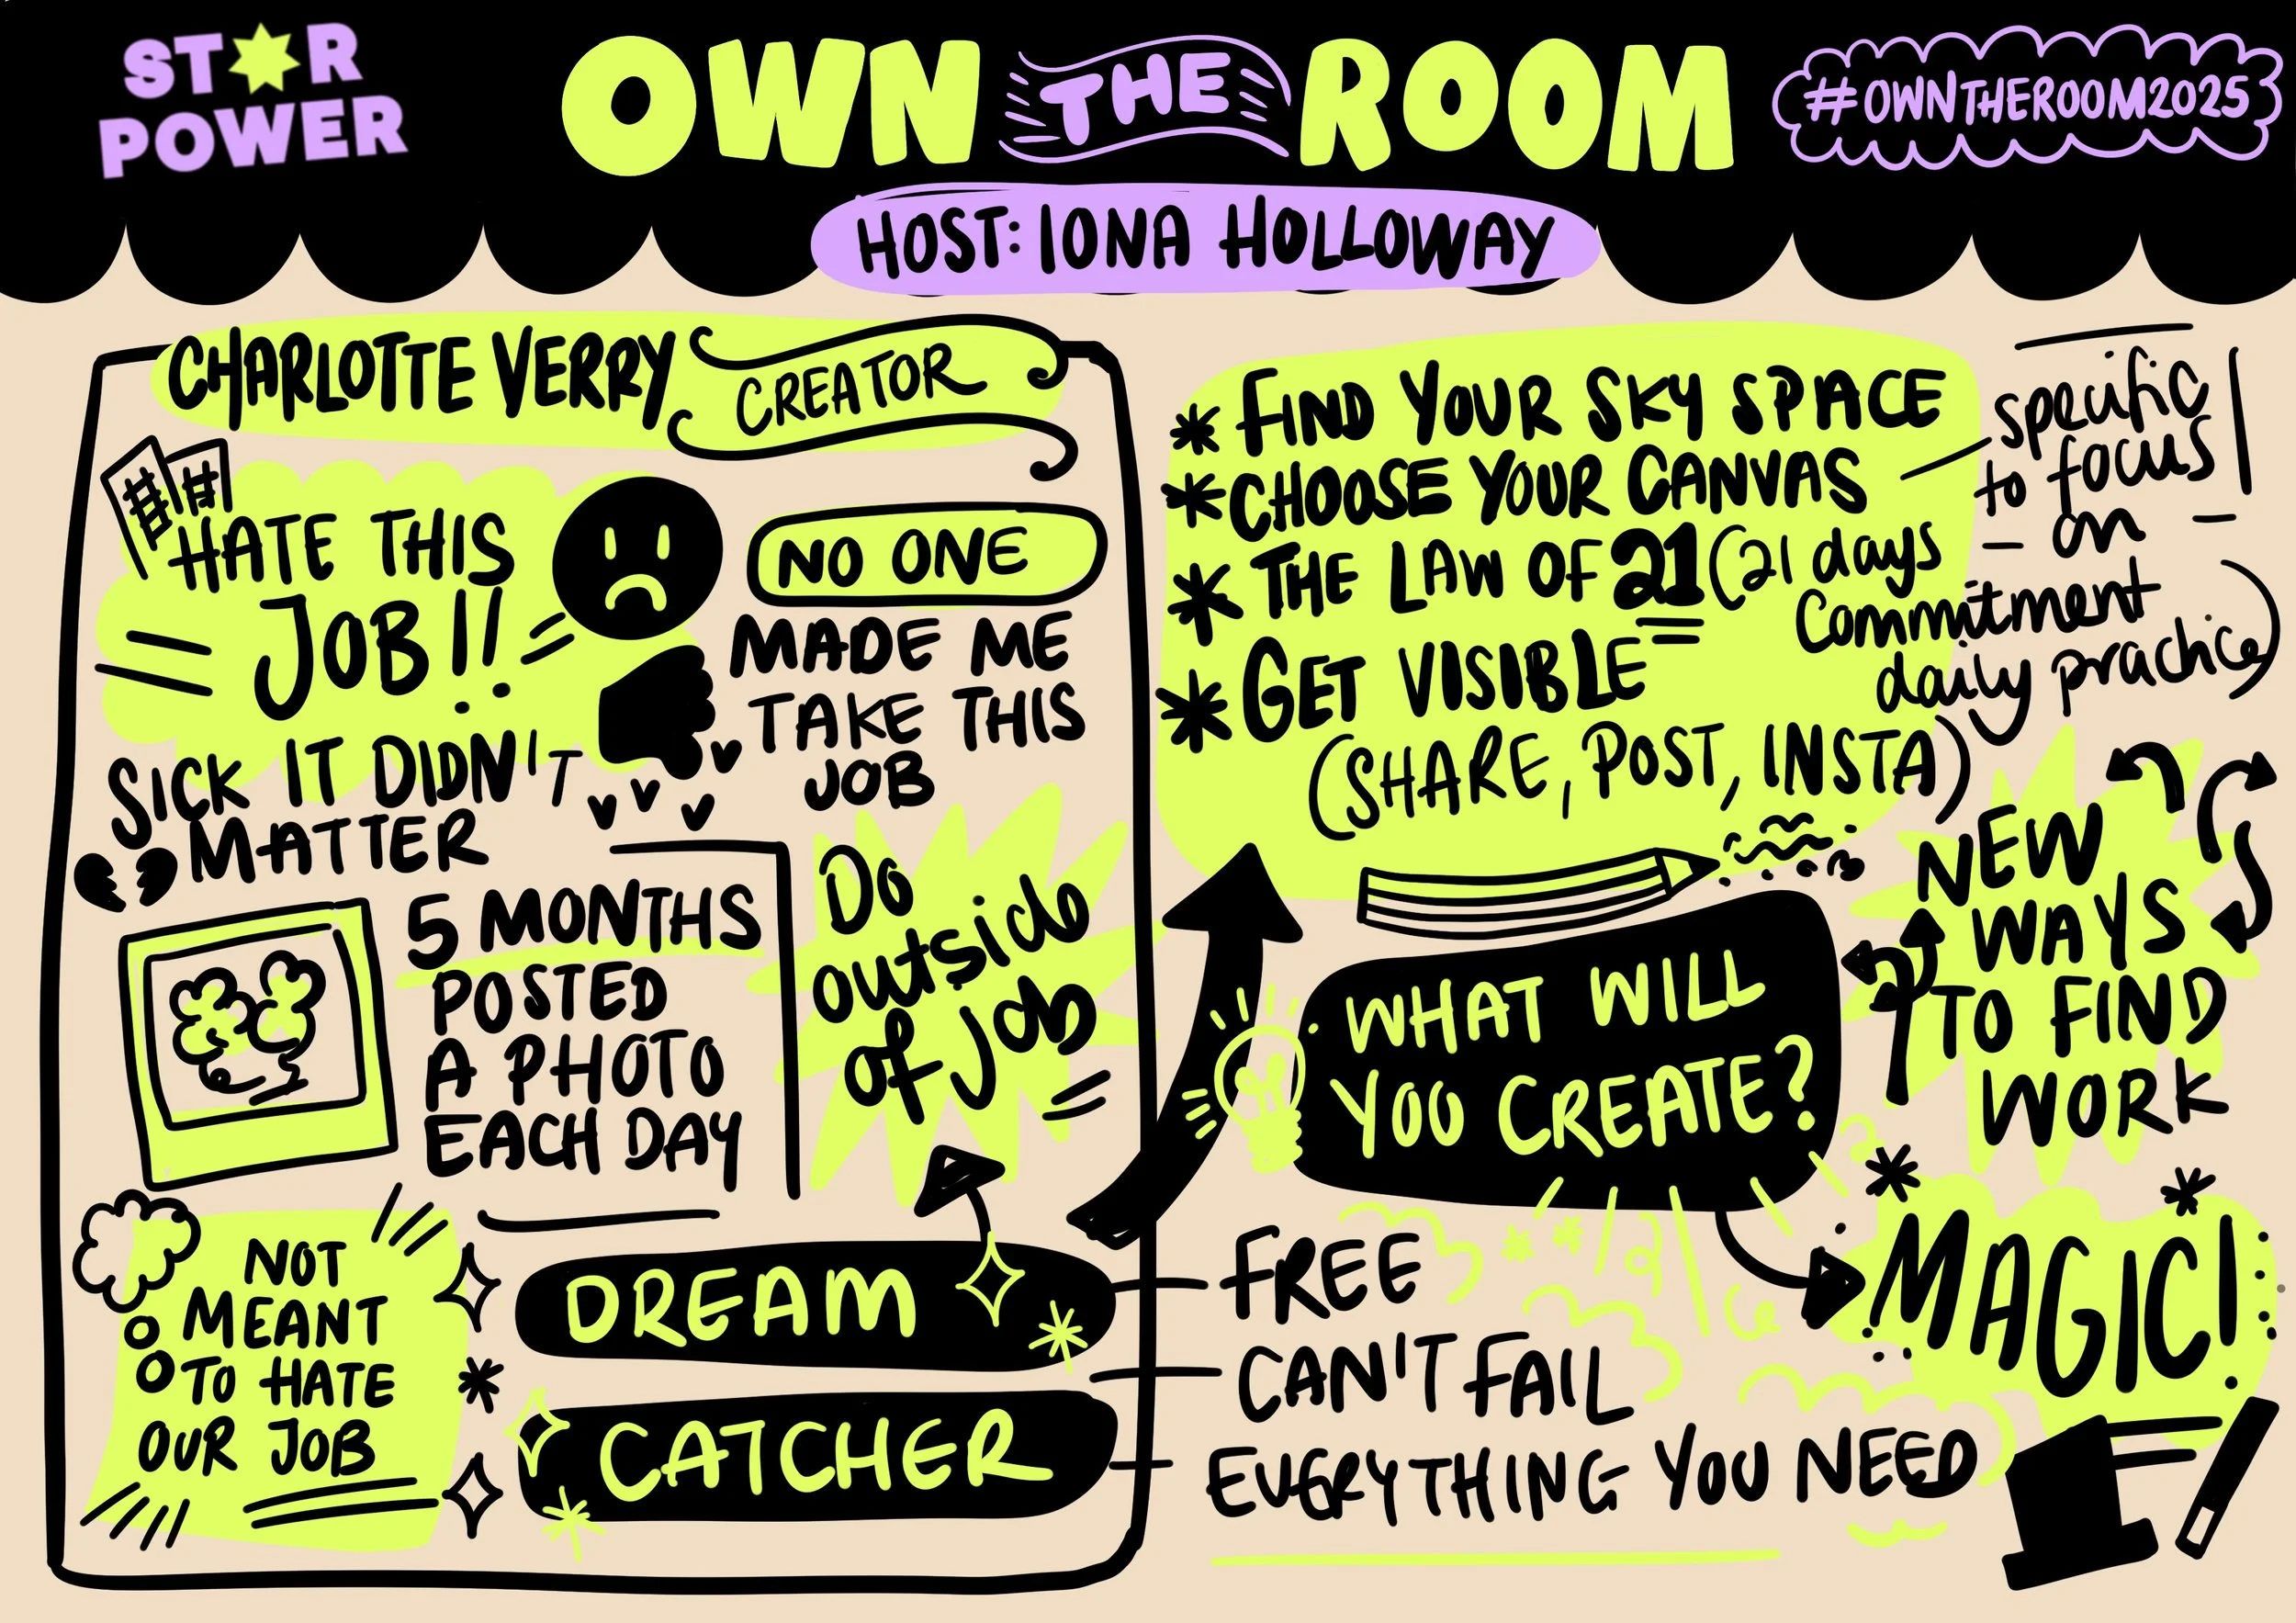 STAR
POWER
OWN THE ROOM
#OWNTHEROOM2025
HOST: IONA HOLLOWAY
CHARLOTTE VERRY
CREATOR
##
HATE THIS
JOB!!
SICK IT DIDN'T
MATTER
NO ONE
MADE ME
TAKE THIS
JOB
5 MONTHS
POSTED
A PHOTO
EACH DAY
Do
outside
of Job
NOT
MEANT
TO HATE
OUR JOB
DREAM
CATCHER
* FIND YOUR SKY SPACE
* CHOOSE YOUR CANVAS
specific
to focus
on
* THE LAW OF 21 (21 days
Commitment
daily practice)
* GET VISIBLE
(SHARE, POST, INSTA)
WHAT WILL
YOU CREATE?
NEW
WAYS
TO FIND
WORK
MAGIC!
FREE
CAN'T FAIL
EVERYTHING YOU NEED